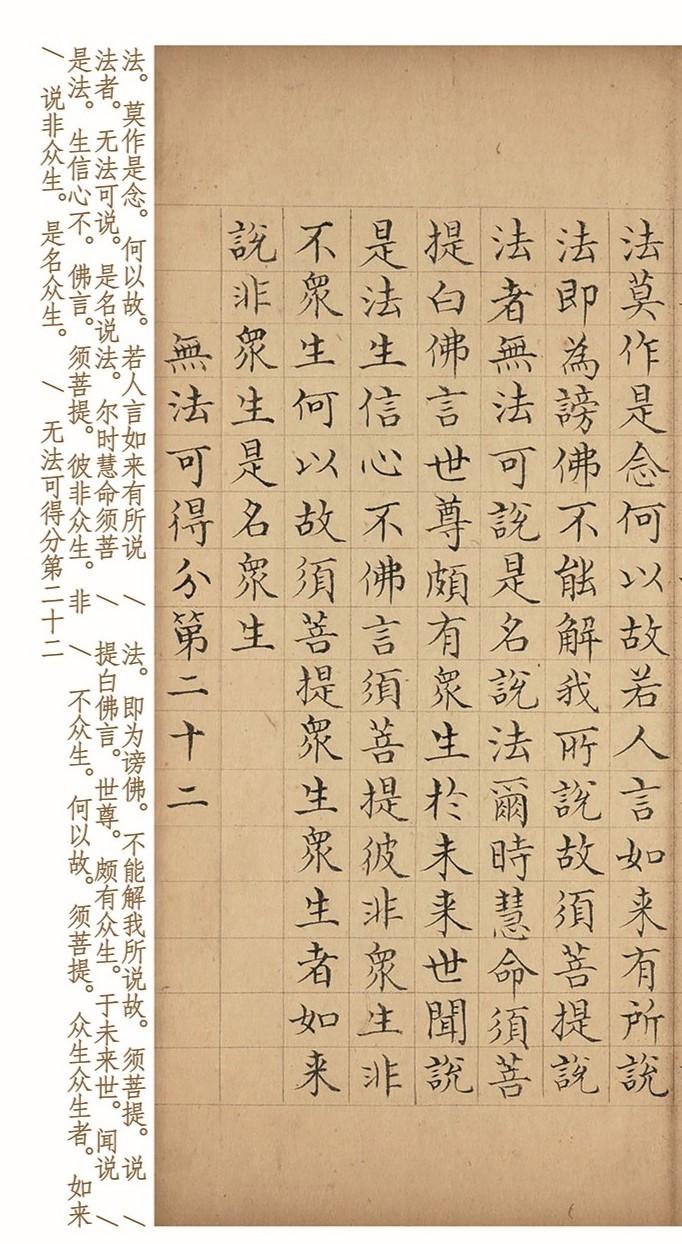 法莫作是念何以故若人言如来有所說
法即為謗佛不能解我所說故須菩提說
法者無法可說是名說法爾時慧命須菩
提白佛言世尊頗有衆生扵未来世聞說
是法生信心不佛言須菩提彼非衆生非
不衆生何以故須菩提衆生衆生者如来
說非衆生是名衆生
無法可得分第二十二
法。莫作是念。何以故。若人言如来有所说 / 法。即为谤佛。不能解我所说故。须菩提。说 /
法者。无法可说。是名说法。尔时慧命须菩 / 提白佛言。世尊。颇有众生。于未来世。闻说 /
是法。生信心不。佛言。须菩提。彼非众生。非 / 不众生。何以故。须菩提。众生众生者。如来
/ 说非众生。是名众生。 / 无法可得分第二十二